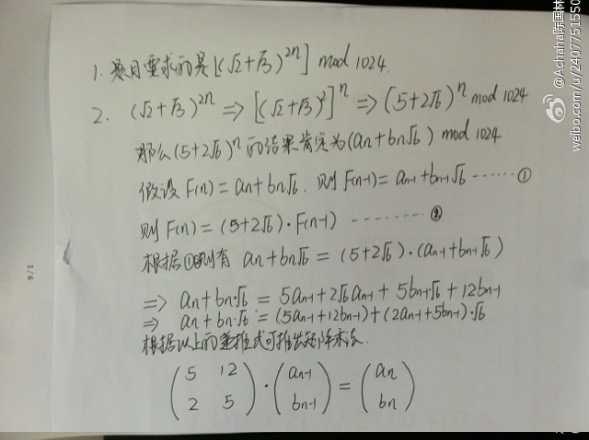 1. 题目要求的是[(√2+√3)^2n] mod 1024.
2. (√2+√3)^2n ⇒ [(√2+√3)^2]^n ⇒ (5+2√6)^n mod 1024
那么(5+2√6)^n 的结果肯定为(an+bn√6) mod 1024
假设 F(n) = an+bn√6. 则 F(n-1) = an-1+bn-1√6 ······①
则 F(n) = (5+2√6)·F(n-1) ········ ②
根据①②则有 an+bn√6 = (5+2√6)·(an-1+bn-1√6)
⇒ an+bn·√6 = 5an-1+2√6an-1 + 5bn-1√6 + 12bn-1
⇒ an+bn·√6 = (5an-1+12bn-1)+(2an-1+5bn-1)·√6
根据以上的递推式可推出矩阵乘法.
(5 12
2 5)·(an-1
bn-1) = (an
bn)
@Achaha陈国林
weibo.com/u/2407751550